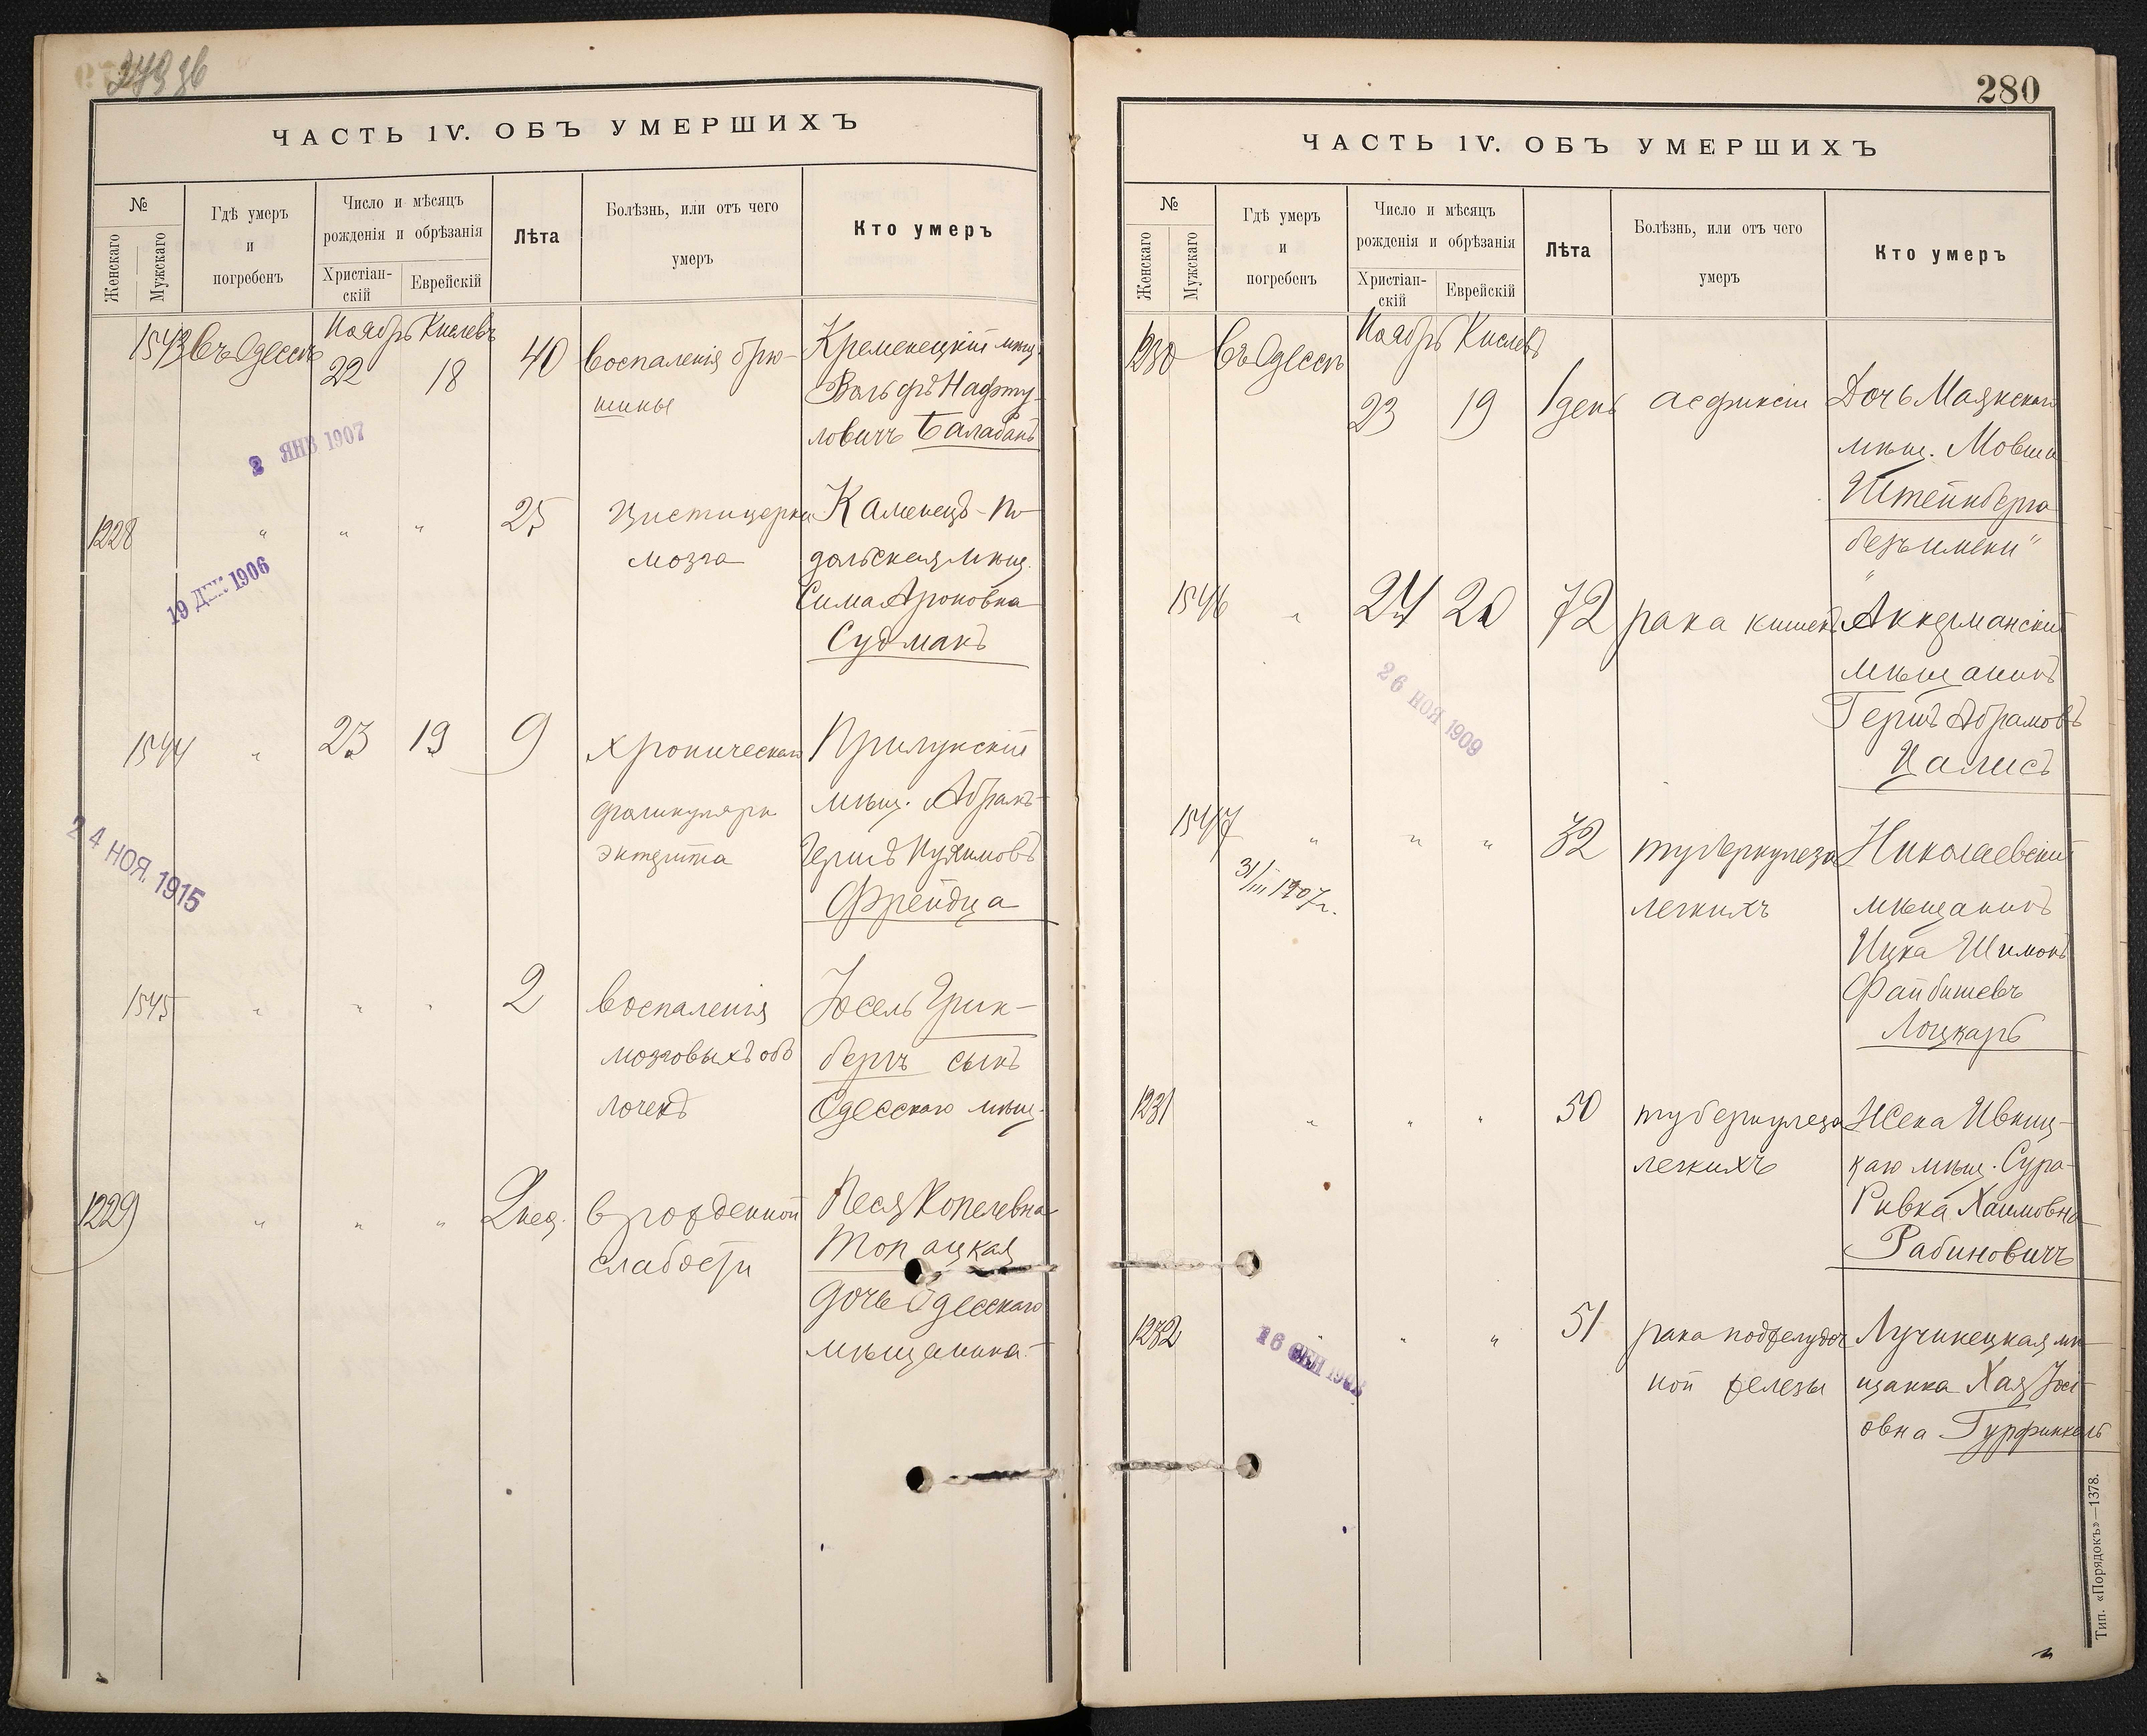 279 об
ЧАСТЬ IV. ОБЪ УМЕРШИХЪ
№
Женскаго
Мужскаго
Гдѣ умеръ
и
погребенъ
Число и мѣсяцъ
рожденія и обрѣзанія
Христіан-
скій
Еврейскій
Лѣта
Болѣзнь, или отъ чего
умеръ
Кто умеръ
1543 Въ Одессѣ Ноябрь Кислевъ
22 18 40 воспаленія брю-
шины
Кременецкій мѣщ.
Вольфъ Нафту-
ловичъ Балабанъ
2 ЯНВ 1907
1228 " " " 25 Цистицерки
мозга
Каменецъ-По-
дольская мѣщ.
Сима Ароновна
Судманъ
19 ДЕК 1906
1544 " 23 19 9 хроническаго
фоликулярн
энтерита
Прилукскій
мѣщ. Абрамъ-
Герш
Фрейдца
24 НОЯ. 1915
1545 " " " 2 воспаленія
мозговыхъ обо
лочекъ
Іосель Грин-
бергъ сынъ
Одесскаго мѣщ.
1229 " " " 2 нед. врожденной
слабости
Песя Копелевна
Топ ацкая
дочь Одесскаго
мѣщанина
280
ЧАСТЬ IV. ОБЪ УМЕРШИХЪ
№
Женскаго
Мужскаго
Гдѣ умеръ
и
погребенъ
Число и мѣсяцъ
рожденія и обрѣзанія
Христіан-
скій
Еврейскій
Лѣта
Болѣзнь, или отъ чего
умеръ
Кто умеръ
1230 Въ Одессѣ Ноябрь Кислевъ
23 19 1 день асфиксіи
Дочь Маякскаго
мѣщ. Мовши
Штейнберга
"безъ имени"
1546 " 24 20 72 рака кишекъ
Аккерманскій
мѣщанинъ
Гершъ Абрамовъ
Цалисъ
26 НОЯ 1909
1547 " " " 32 туберкулеза
легкихъ
31/III 1907 г.
Николаевскій
мѣщанинъ
Ицка Шимонъ
Файбишевъ
Лоцкарь
1231 " " " 50 туберкулеза
легкихъ
Жена Ивниц-
каго мѣщ. Сура-
Ривка Хаимовна
Рабиновичъ
1232 " " " 51 рака поджелудоч
ной железы
Лучинецкая мѣ-
щанка Хая Іос-
овна Гурфинкель
Тип. «Порядокъ»—1378.